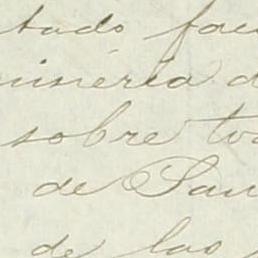 tado fac
minéria d
sobre to
de San
de las